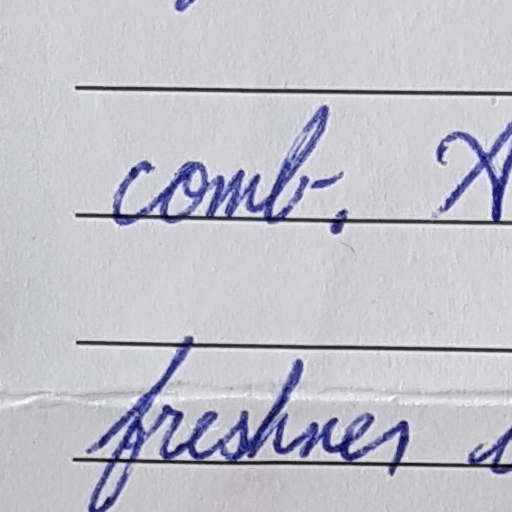 comb.
freshner